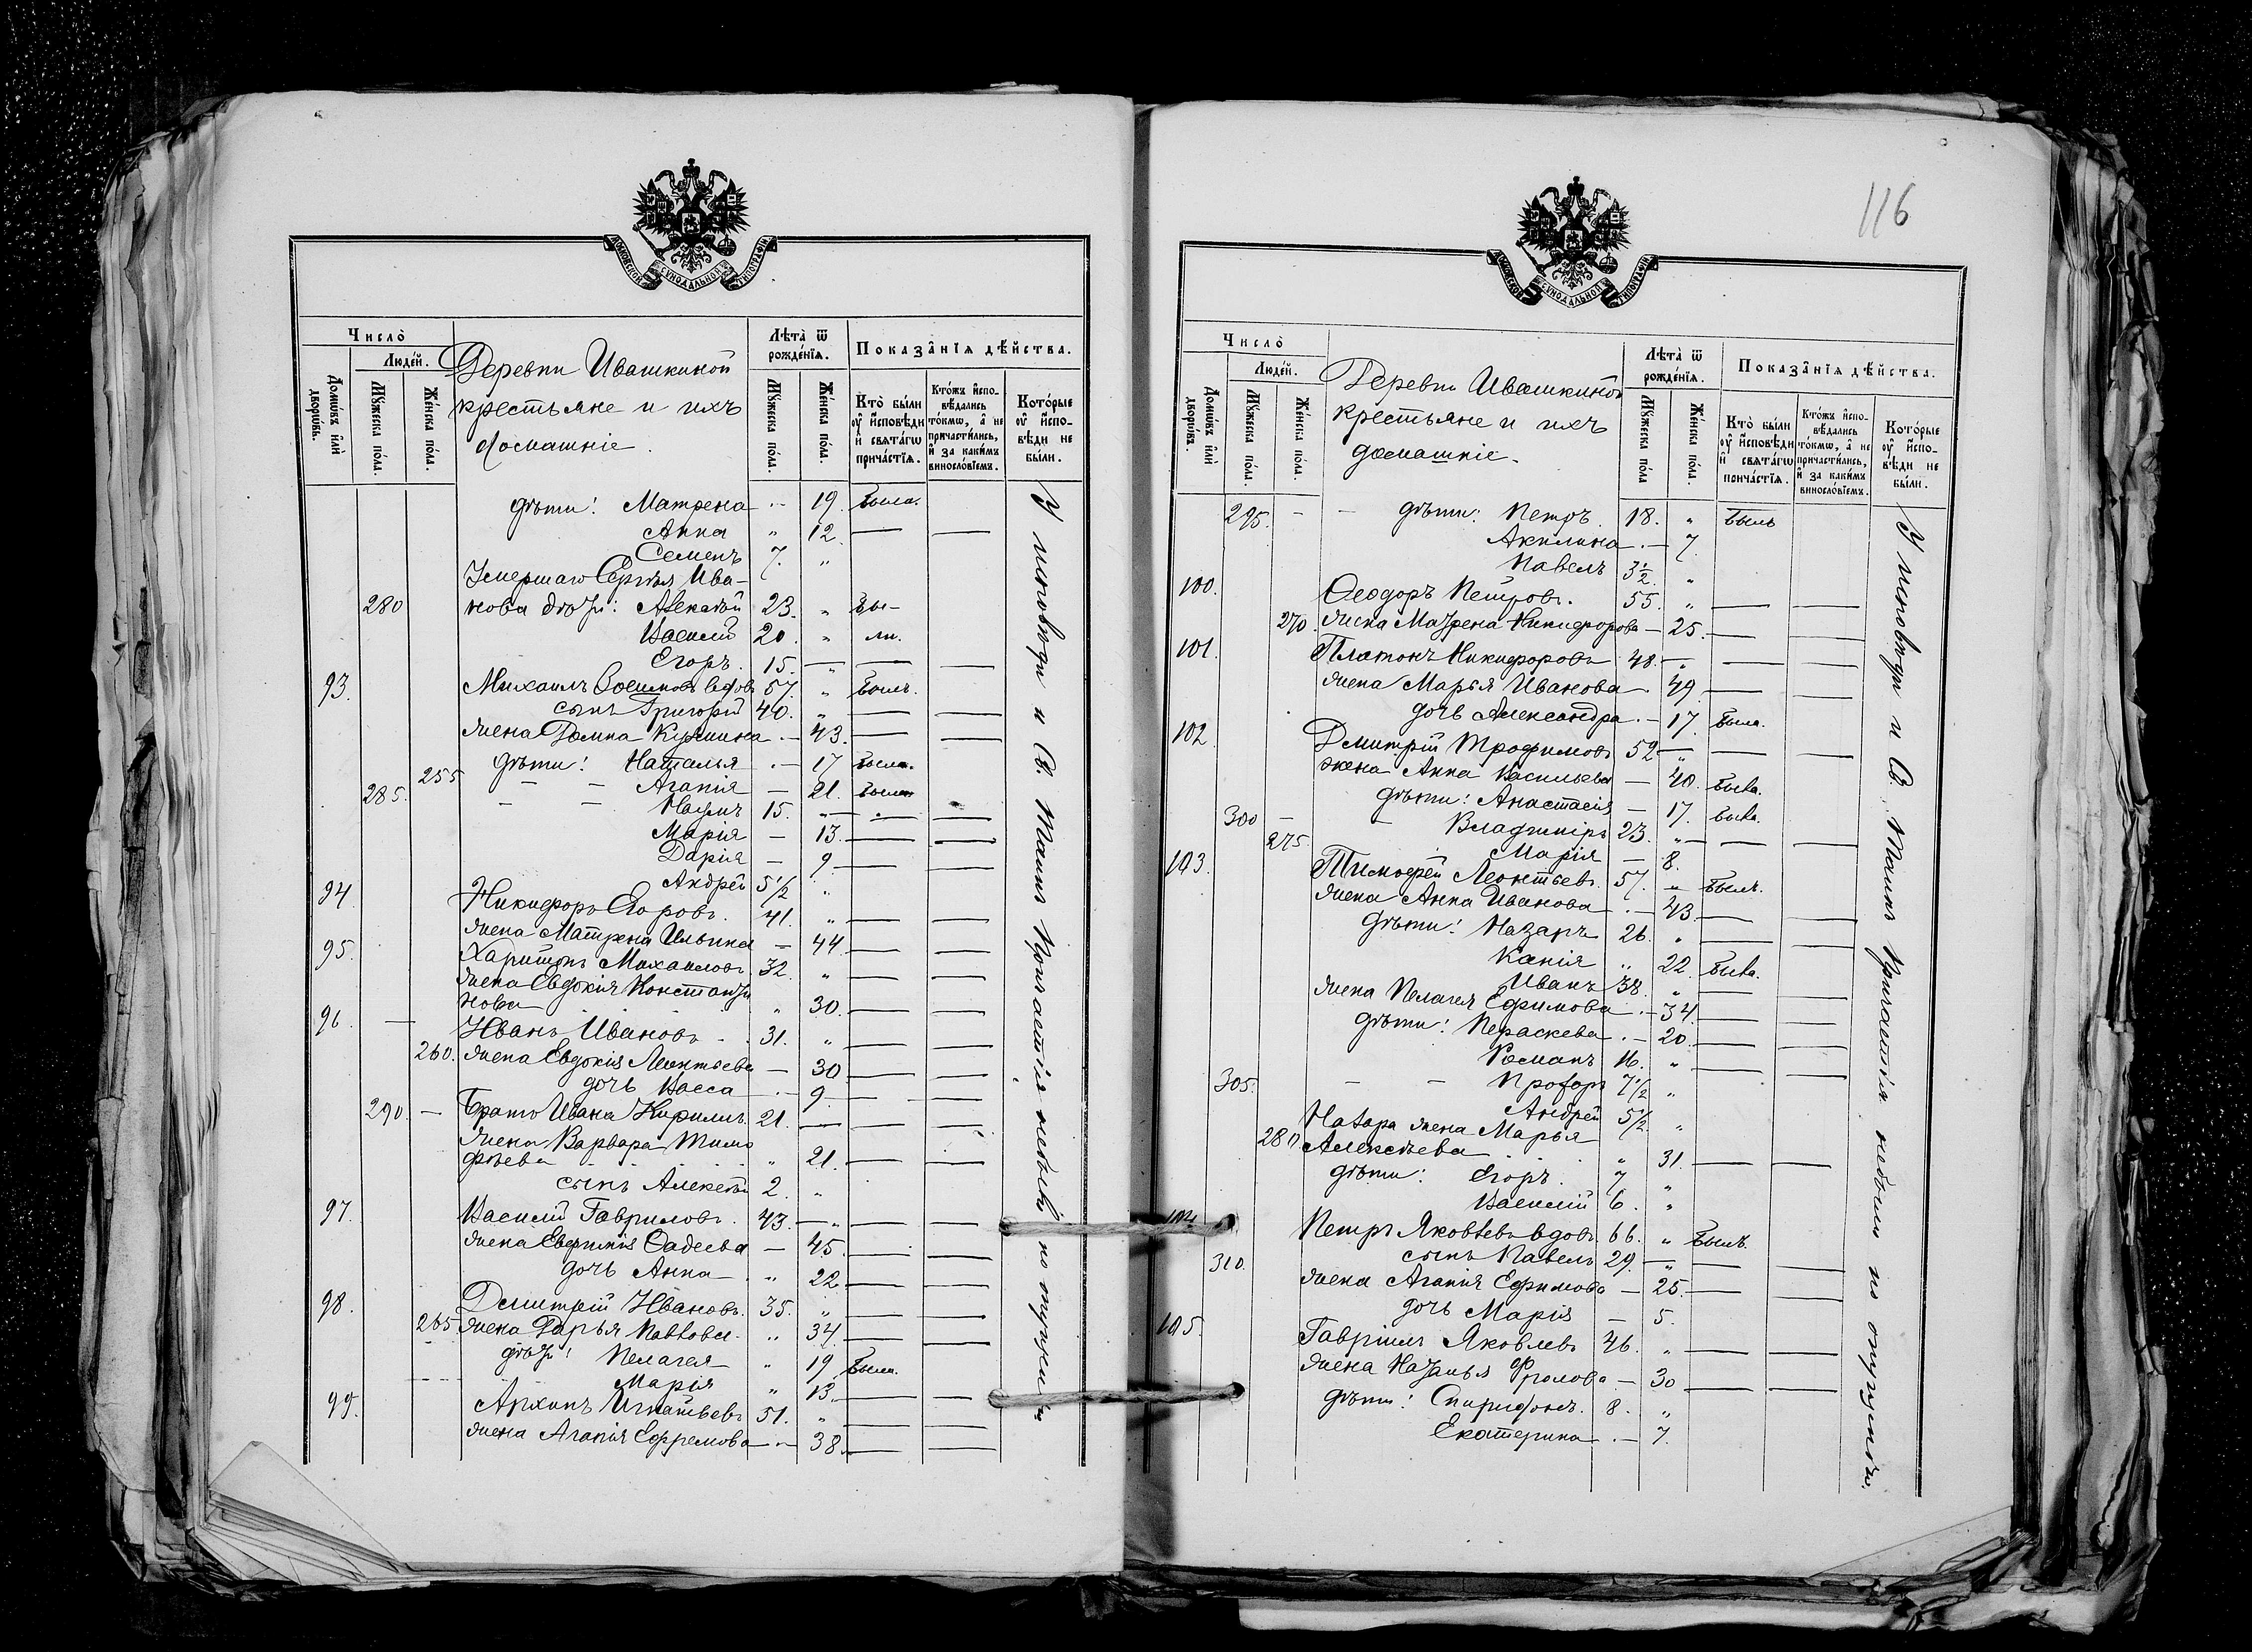 МОСКОВСКОЙ СѴНОДАЛЬНОЙ ТИПОГРАФІИ
Число̀
Людéй.
Домѡ́въ и҆лѝ дворѡ́въ.
Мꙋ́жеска по́ла.
Же́нска по́ла.
Деревни Ивашкиной
крестьяне и ихъ
домашніе.
Лѣта̀ ѿ рожде́нїѧ.
Мꙋ́жеска по́ла.
Же́нска по́ла.
Показа̑нїѧ дѣ́йства.
Кто̀ бы́ли оу҆ и҆сповѣ́ди и҆ свѧта́гѡ прича́стїѧ.
Кто́жъ и҆спо-вѣ́дались то́кмѡ, а҆ не причасти́лись, и҆ за каки́мъ виносло́вїемъ.
Кото́рые оу҆ и҆спо-вѣ́ди не бы́ли.
дѣти: Матрена — 19. была.
Анна " 12. — —
Семенъ 7. "
Умершаго Сергѣя Ива-
280 нова дѣти: Алексѣй 23. " бы-
Василій 20. " ли.
Егоръ. 15. — " — —
93. Михаилъ вдовъ 57. " былъ.
сынъ Григорій 40. " — —
жена Домна Кузмина — 43. — —
дѣти: Наталья — 17 была.
255 — — Агапія — 21. была
285. — — Наумъ 15. " — — —
Марія — 13. — —
Дарія — 9. — —
Андрей 5½ "
94. Никифоръ Егоровъ. 41. " — —
жена Матрена Ильина — 44. — —
95. Харитонъ Михаиловъ. 32. " — —
жена Евдокія Константи
нова " 30. — —
96. — Иванъ Ивановъ 31. " — —
260. жена Евдокія Леонтьева — 30 — —
дочь Васса — 9. — —
290. — Братъ Ивана Кирилъ. 21. — — —
жена Варвара Тимо
фѣева " 21. — —
сынъ Алексѣй 2. "
97. Василій Гавриловъ. 43. — " — —
жена Евфимія Фадеева — 45. — —
дочь Анна " 22. — —
98. Дмитрій Ивановъ. 35. " — —
265 жена Дарья Павлова. " 34. — —
дѣти: Пелагея " 19. была.
Марія " 13. — —
99. Архипъ Игнатьевъ 51. " — —
жена Агапія Ефремова — 38. — —
У исповѣди и Св. Таинъ Причастія небыли по
116
МОСКОВСКОЙ СѴНОДАЛЬНОЙ ТИПОГРАФІИ
Число̀
Людéй.
Домѡ́въ и҆лѝ дворѡ́въ.
Мꙋ́жеска по́ла.
Же́нска по́ла.
Деревни Ивашкиной
крестьяне и ихъ
домашніе.
Лѣта̀ ѿ рожде́нїѧ.
Мꙋ́жеска по́ла
Же́нска по́ла.
Показа̑нїѧ дѣ́йства.
Кто̀ бы́ли оу҆ и҆сповѣ́ди и҆ свѧта́гѡ прича́стїѧ.
Кто́жъ и҆спо-вѣ́дались то́кмѡ, а҆ не причасти́лись, и҆ за каки́мъ виносло́вїемъ.
Кото́рые оу҆ и҆спо-вѣ́ди не бы́ли.
295. — — дѣти: Петръ. 18. " былъ
Акилина — 7.
Павелъ 3½. "
100. Ѳеодоръ Петровъ. 55. " — —
270. жена Матрена Никифорова — 25. — —
101. Платонъ Никифоровъ 48. — " — —
жена Марья Иванова — 49. — —
дочь Александра — 17. была.
102. Дмитрій Трофимовъ 52 — " — —
жена Анна Васильева — 40. была.
дѣти: Анастасія — 17. была.
300 — — Владимиръ 23. " — — —
275. Марія — 8.
103. Тимофей Леонтьевъ. 57. " былъ.
жена Анна Иванова — 43. — —
дѣти: Назаръ 26. " — —
Капія " 22. была.
Иванъ 38. " — —
жена Пелагея Ефимова — 34. — —
дѣти: Пераскева — 20. — —
Романъ 16. " — —
305. — — Прохоръ 7½ "
Андрей 5½. "
Назара жена Марья
280. Алексѣева " 31. — —
дѣти: Егоръ. 7 "
Василій 6. "
104. Петръ Яковлевъ вдовъ. 66. " былъ.
сынъ Павелъ 29. — " — —
310. жена Агапія Ефимова — 25. — —
дочь Марія — 5.
105. Гавріилъ Яковлевъ 46. " — —
жена Наталья Фролова — 30 — —
дѣти: Спиридонъ. 8. "
Екатерина — 7.
У исповѣди и Св. Таинъ Причастія небыли по опущенію.